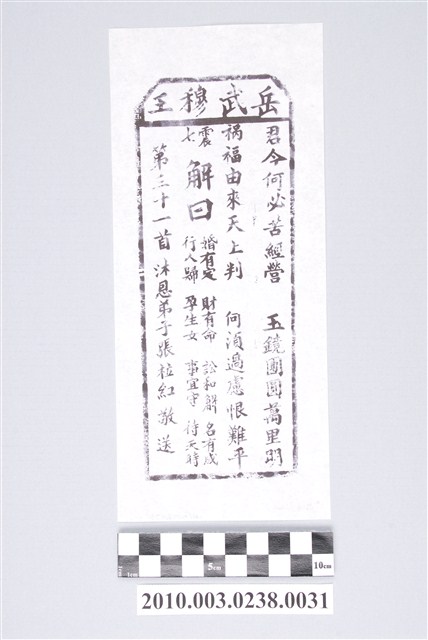 岳武穆王
君今何必苦經營 玉鏡團圓萬里明
禍福由來天上判 何須過慮恨難平
震七
解曰
婚有定 財有命 訟和解 名有成
行人歸 孕生女 事宜守 待天時
第三十一首 沐恩弟子張粒紅敬送
1cm 5cm 10cm
2010.003.0238.0031